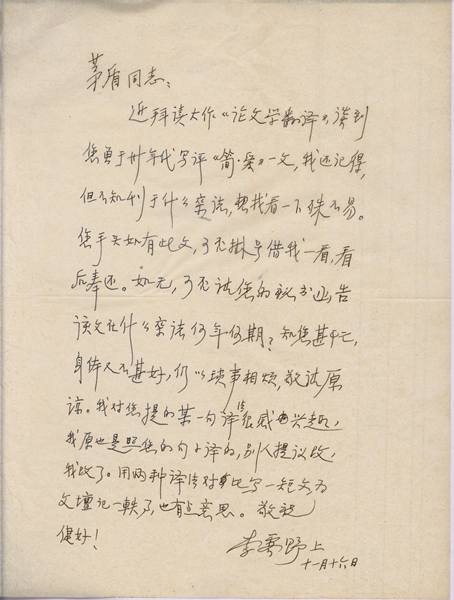 茅盾同志：
近拜读大作《论文学翻译》，谈到
您曾于卅年代写评《简·爱》一文，我还记得，
但不知刊于什么杂志，想找看一下殊不易。
您手头如有此文，可否挂号借我一看，看
后奉还。如无，可否请您的秘书函告
该文在什么杂志何年何期？知您甚忙，
身体又不甚好，仍以琐事相烦，敬请原
谅。我对您提的某一句译法很感兴趣，
我原也是照您的句子译的，别人提议改，
我改了。用两种译法对比写一短文为
文坛记一轶事，也有点意思。敬祝
健好！
李霁野上
十一月十六日